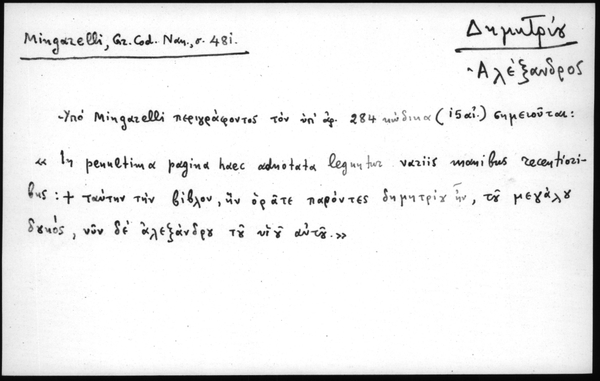 Mingarelli, Gr. Cod. Nan., σ. 481.
Δημητρίου
-Αλέξανδρος
-Υπό Mingarelli περιγράφοντος τον υπ' αρ. 284 κώδικα (15 αι.) σημειούται:
« In penultima pagina haec adnotata leguntur variis manibus recentiori-
bus: + ταύτην τὴν βίβλον, ἣν ὁρᾶτε παρόντες δημητρίου ἦν, τοῦ μεγάλου
δουκός, νῦν δὲ ἀλεξάνδρου τοῦ υἱοῦ αὐτοῦ.»